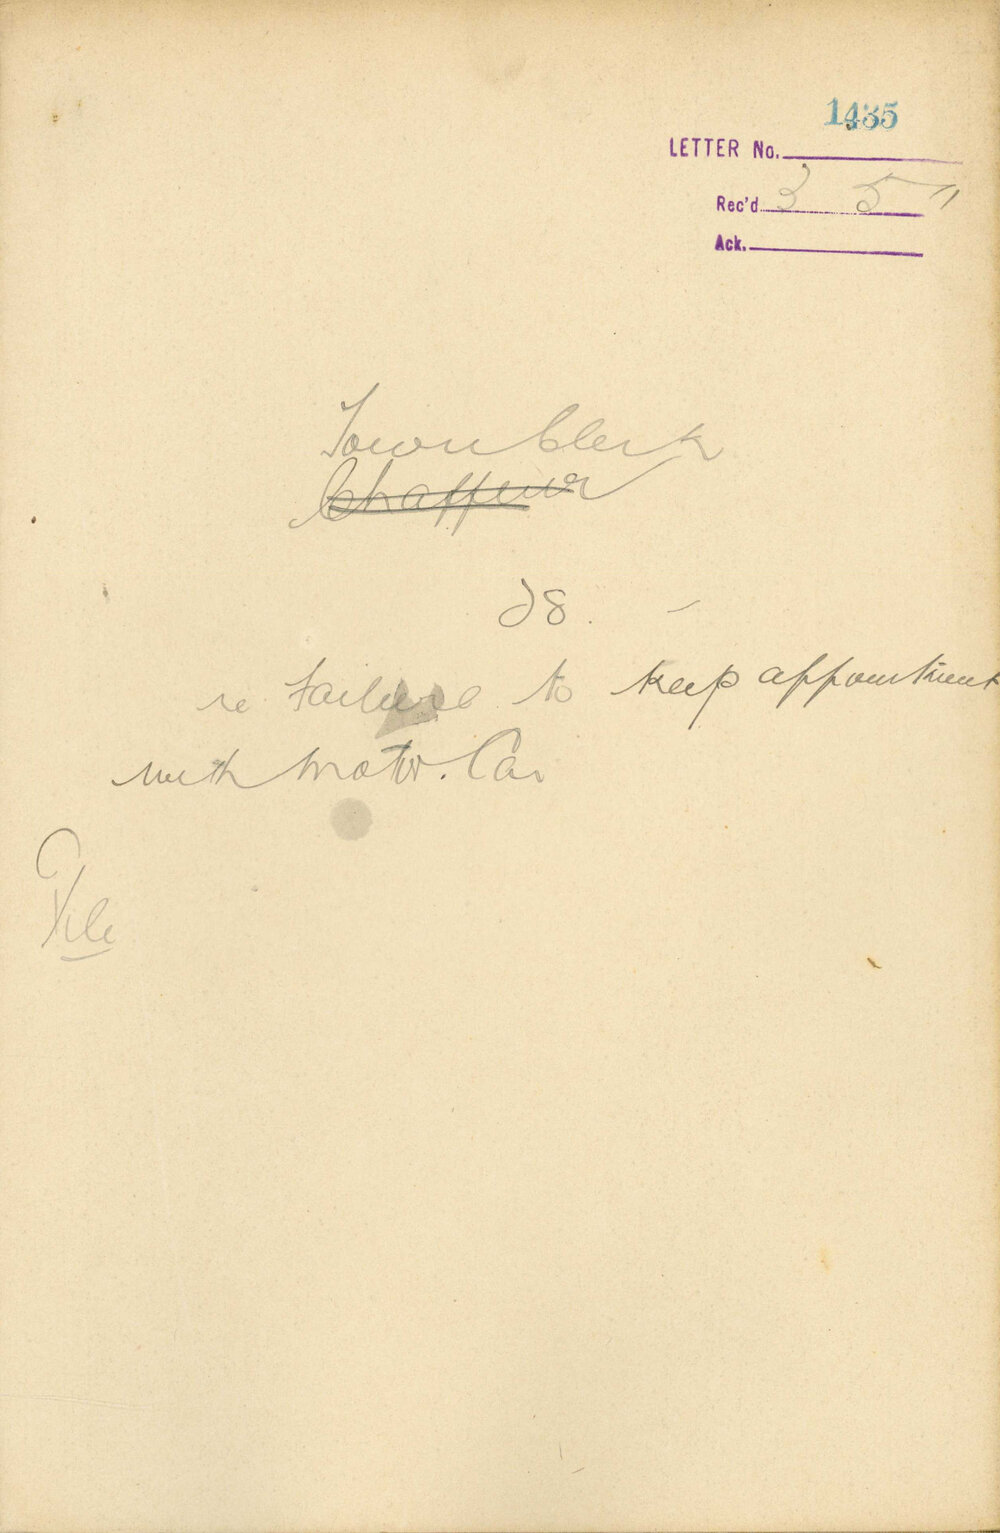 1435
LETTER No.
Rec'd 3 5 11
Ack.
Town Clerk
Chaffeur
28. -
re failure to keep appointment
with Motor. Car
File